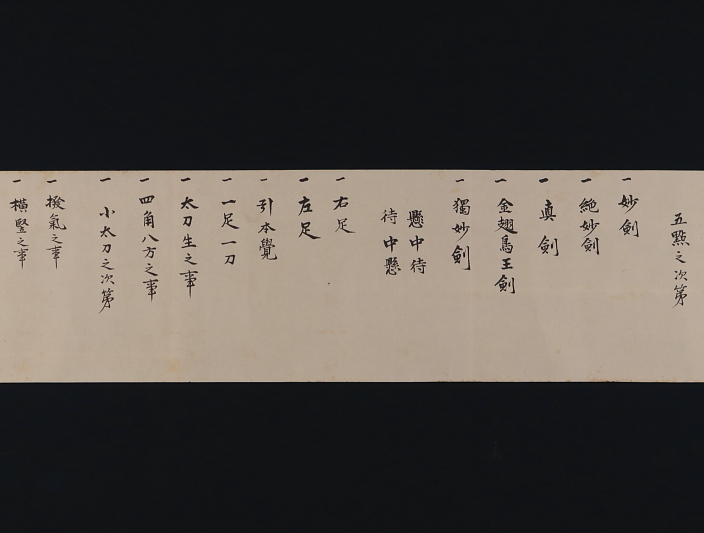 五點之次第
一 妙剣
一 絶妙剣
一 真剣
一 金翅鳥王剣
一 獨妙剣
懸中待
待中懸
一 右足
一 左足
一 引本覺
一 一足一刀
一 太刀生之事
一 四角八方之事
一 小太刀之次第
一 撥氣之事
一 横竪之事